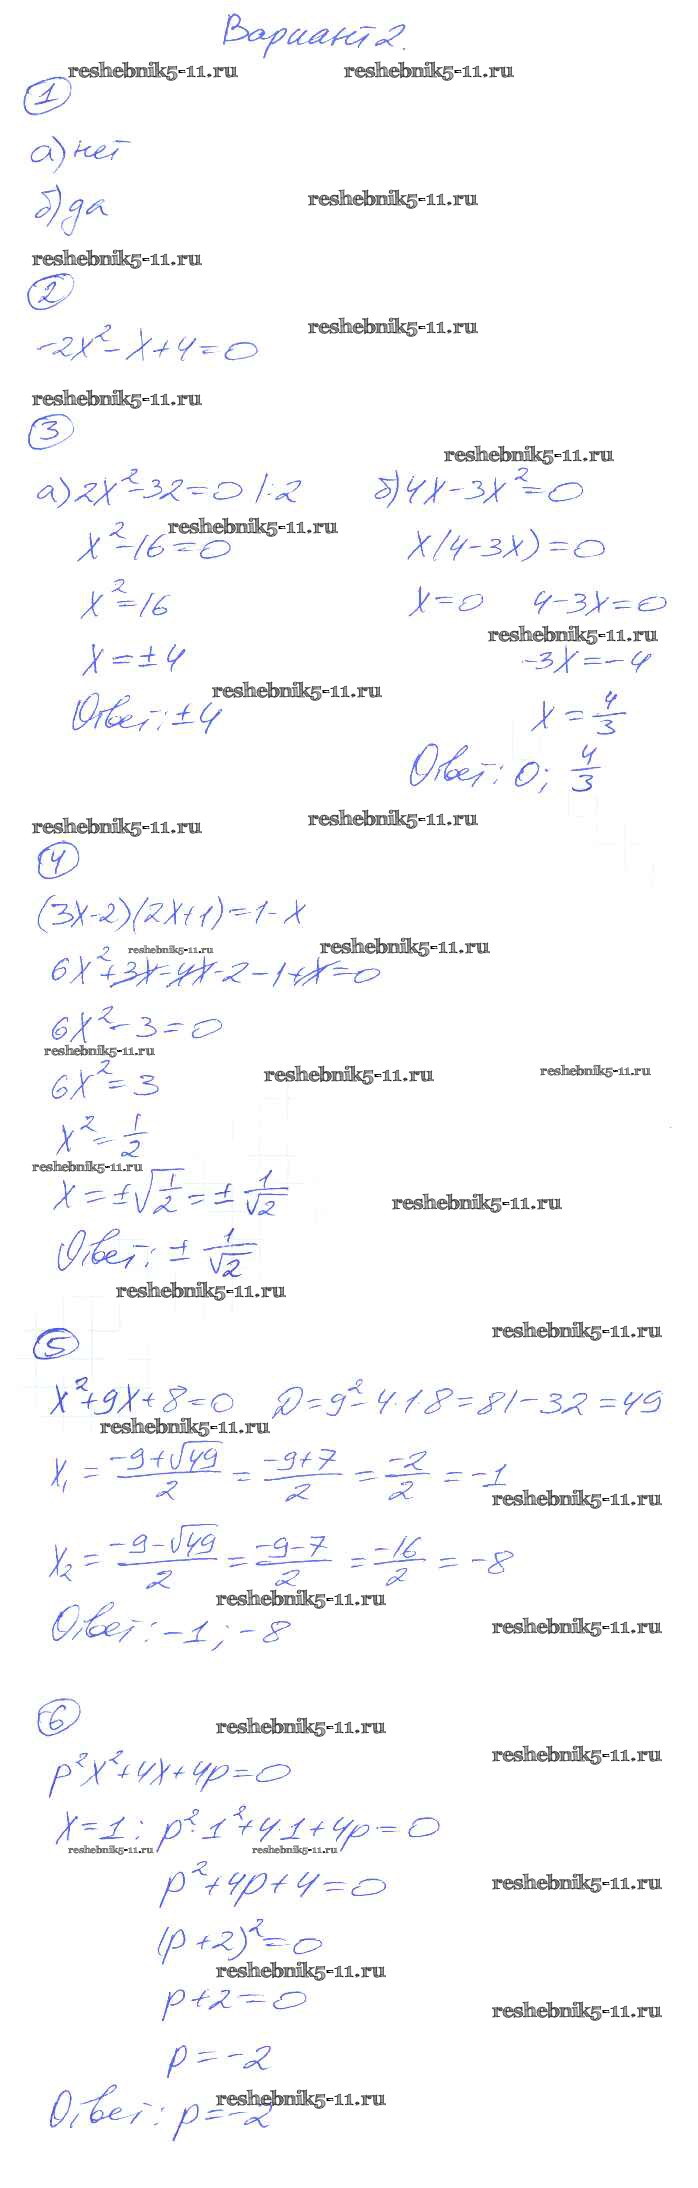 Вариант 2.
reshebnik5-11.ru reshebnik5-11.ru
1
а) нет
б) да
reshebnik5-11.ru
reshebnik5-11.ru
2
reshebnik5-11.ru
-2x²-x+4=0
reshebnik5-11.ru
3
reshebnik5-11.ru
а) 2x²-32=0 |:2 б) 4x-3x²=0
reshebnik5-11.ru
x²-16=0 x(4-3x)=0
x²=16 x=0 4-3x=0
reshebnik5-11.ru
x=±4 -3x=-4
reshebnik5-11.ru
Ответ: ±4 x=4/3
Ответ: 0; 4/3
reshebnik5-11.ru reshebnik5-11.ru
4
(3x-2)(2x+1)=1-x
reshebnik5-11.ru reshebnik5-11.ru
6x²+3x-4x-2-1+x=0
6x²-3=0
reshebnik5-11.ru
reshebnik5-11.ru reshebnik5-11.ru
6x²=3
x²=1/2
reshebnik5-11.ru
x=±√1/2=±1/√2
reshebnik5-11.ru
Ответ: ±1/√2
reshebnik5-11.ru
reshebnik5-11.ru
5
x²+9x+8=0 D=9²-4·1·8=81-32=49
reshebnik5-11.ru
x₁=(-9+√49)/2=(-9+7)/2=-2/2=-1
reshebnik5-11.ru
x₂=(-9-√49)/2=(-9-7)/2=-16/2=-8
reshebnik5-11.ru
Ответ: -1; -8
reshebnik5-11.ru
6
reshebnik5-11.ru
reshebnik5-11.ru
p²x²+4x+4p=0
x=1: p²·1²+4·1+4p=0
reshebnik5-11.ru reshebnik5-11.ru
p²+4p+4=0
reshebnik5-11.ru
(p+2)²=0
reshebnik5-11.ru
p+2=0
reshebnik5-11.ru
p=-2
reshebnik5-11.ru
Ответ: p=-2